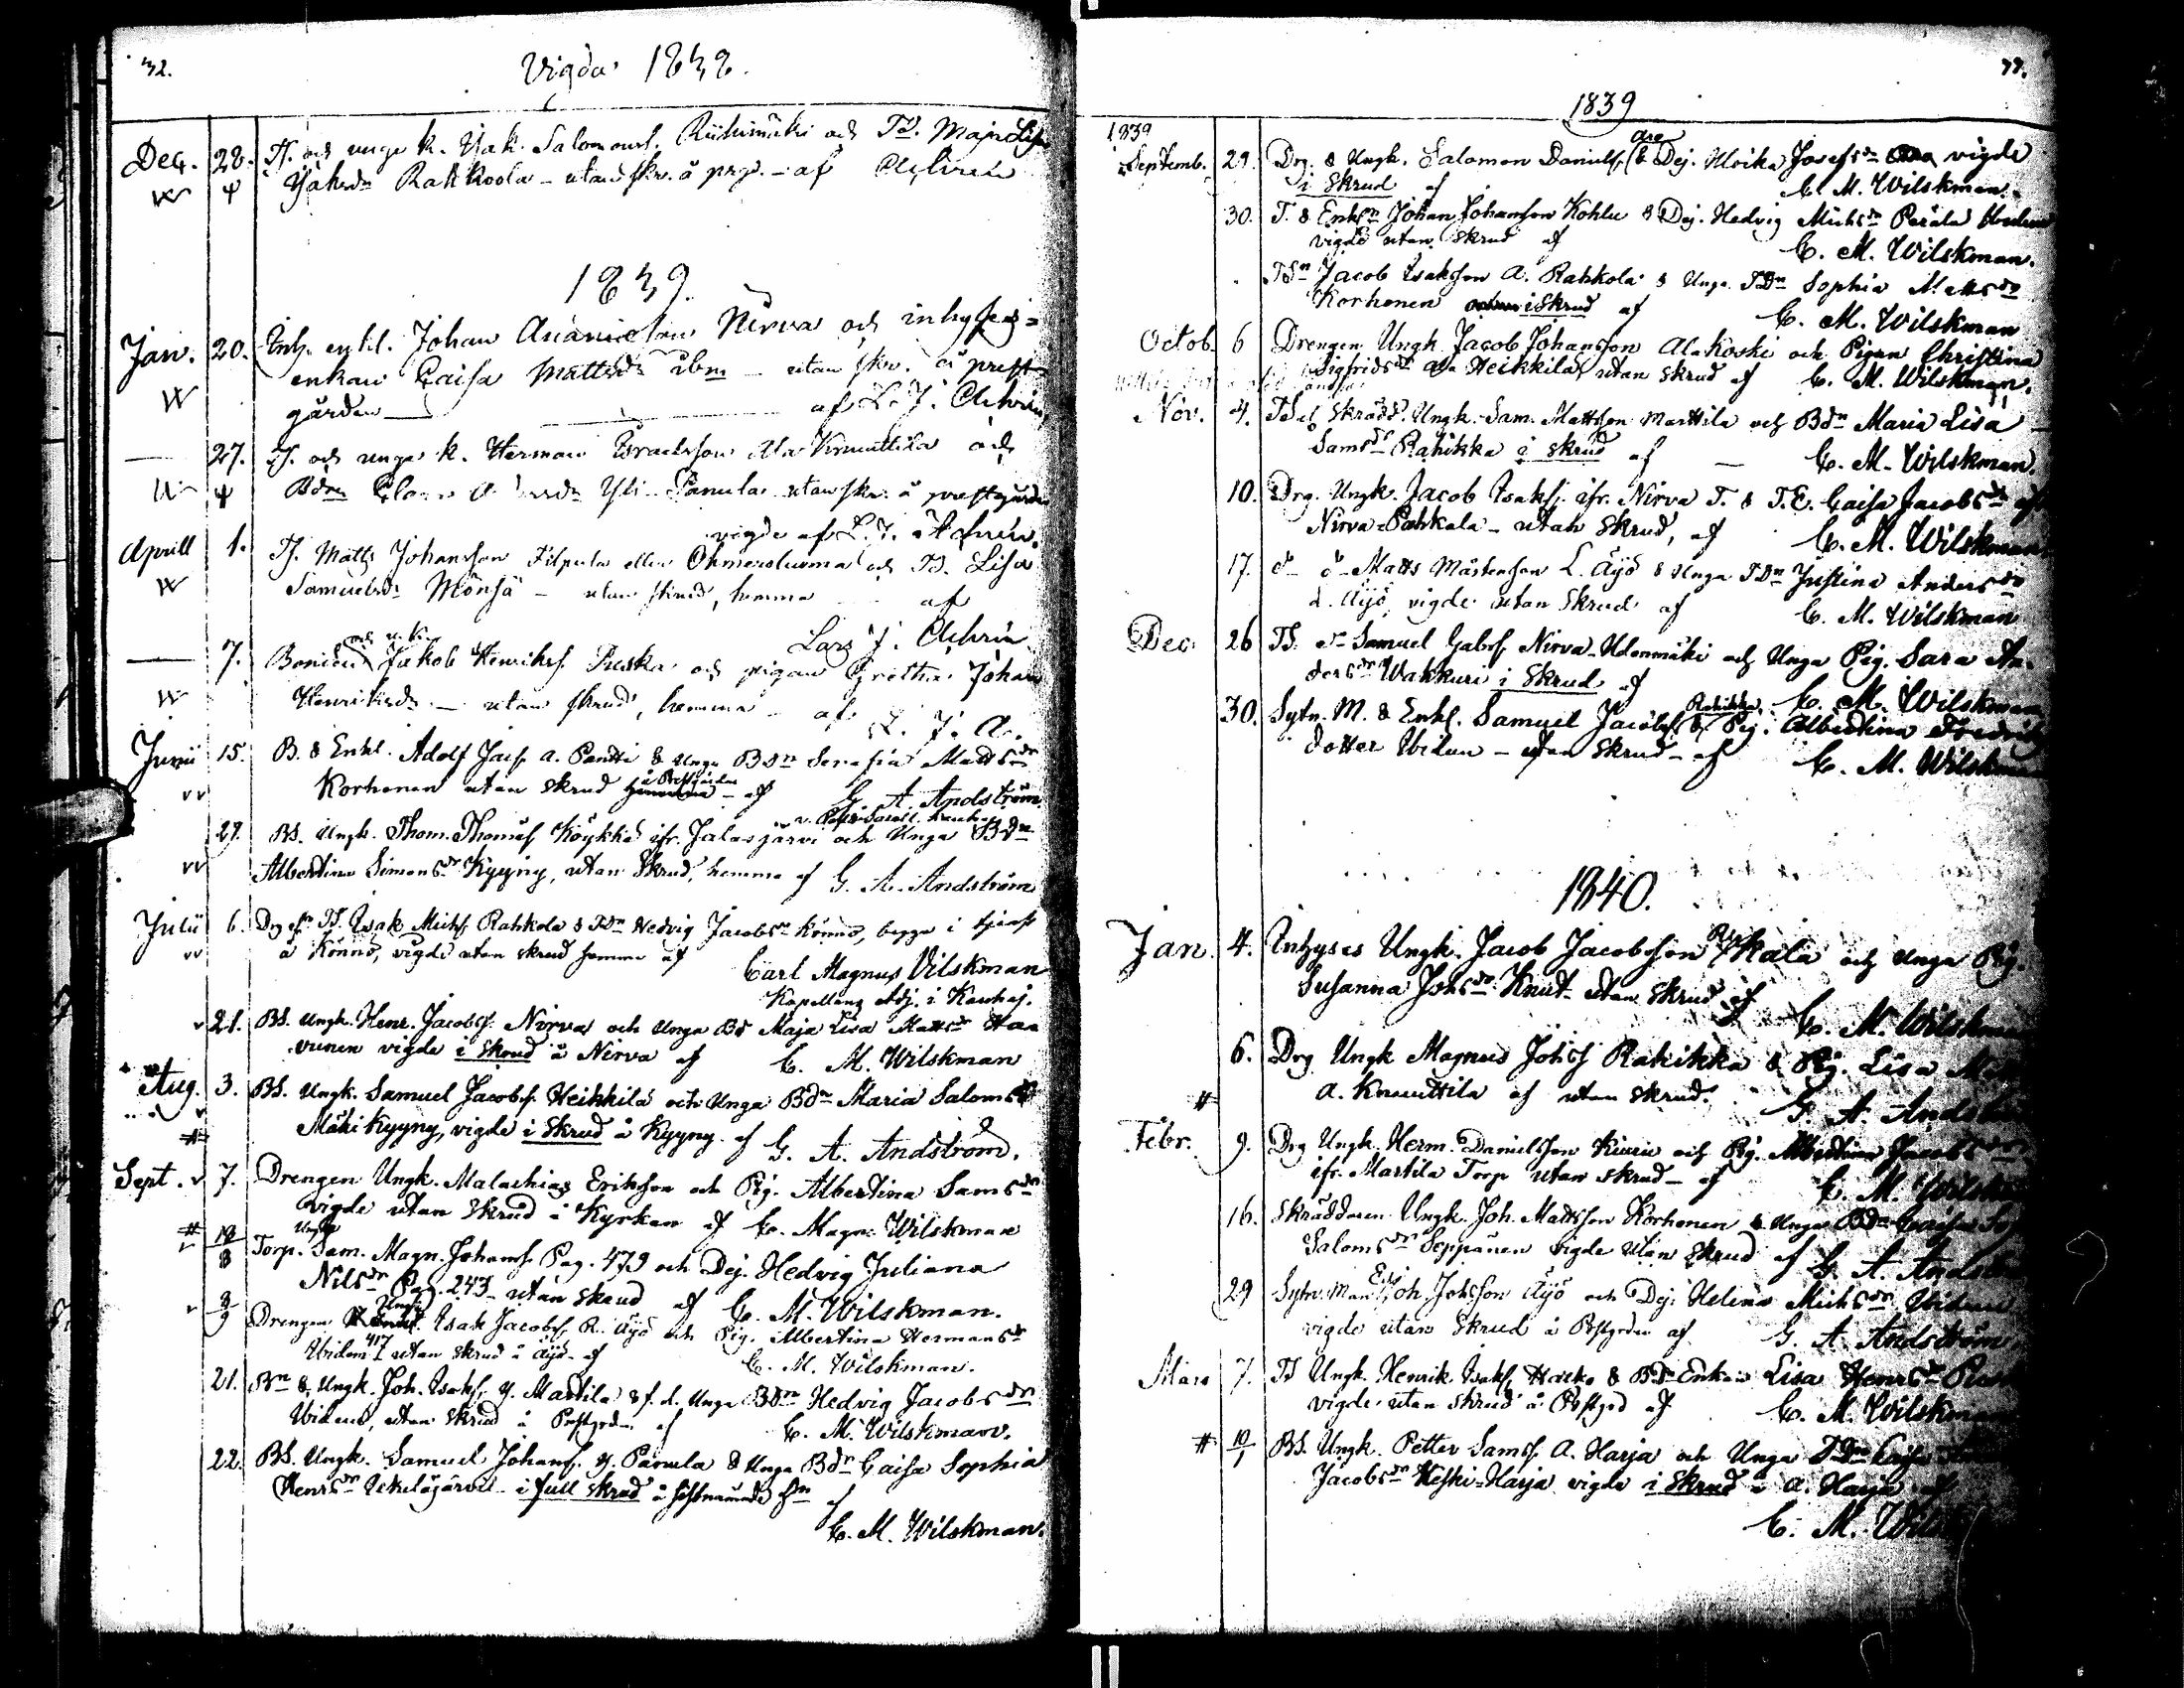 32.
Vigda 1838.
Dec. 28. Ts. och unge k. Isak Salomons. Riihimäki och Td. Maja Lisa
Jaksdr Rahkoola - utan skr. å prg. - af Achrén
1839.
Jan. 20. Inh. enkl. Johan Ananielson Nirva och inhyses-
enkan Caisa Mattsdr ibm - utan skr. å prest-
gården af L. J. Achrén
27. Ts. och unge k. Herman Israelsson Ala Knuuttila och
Bdr Yli-Panula utan skr. å prestgården
vigde af L. J. Achrén.
Aprill 1. Ts. Matts Johansson Filpula eller och Td. Lisa
Samuelsdr Mönsä - utan skrud, hemma af
Lars J. Achrén
7. Bonden och u. k. Jakob Henrikss. Puska och pigan Gretha Johan
Henriksdr - utan skrud, hemma - af L. J. A.
Junii 15. B. & Enkl. Adolf Jacs. A. Pantti & Unga Bdn Serafia Mattsdr
Korhonen utan skrud å Prestgården - af G. A. Andström
29. Bs. Ungk. Thom. Thomass. Köykkä ifr. Jalasjärvi och Unga Bdn
Albertina Simonsdr Kyyny, utan Skrud, hemma af G. A. Andström
Julii 6. Isak Michs. Rahkola & Tdn Hedvig Jacobsdr Könnö, begge i tjenst
å Könnö, vigde utan skrud hemma af Carl Magnus Vilskman
Kapellans Adj. i Kauhaj.
21. Bs. Ungk. Henr. Jacobss. Nirva och Unga Bd Maja Lisa Mattsdr Haa-
vunen vigde i skrud å Nirva af C. M. Wilskman
Aug. 3. Bs. Ungk. Samuel Jacobss. Heikkilä och Unga Bdn Maria Salomsdr
Mäki Kyyny, vigde i skrud å Kyyny af G. A. Andström.
Sept. 7. Drengen Ungk. Malachias Eriksson och Pig. Albertina Samsdr
vigde utan Skrud i Kyrkan af C. Magn. Wilskman
10/8 Torp. Ungk. Sam. Magn. Johanss. Pag. 479 och Dej. Hedvig Juliana
Nilsdr Pag. 243 - utan skrud af C. M. Wilskman.
8/9 Drengen Ungk. Isak Jacobss. R. Äyö och Pig. Albertina Hermansdr
Widen 417 utan skrud å Äyö - af C. M. Wilskman.
21. Bn & Ungk. Joh. Isakss. Y. Martila & f. d. Unga Bdn Hedvig Jacobsdr
Widen, utan skrud å Prstgrd. af C. M. Wilskman.
22. Bs. Ungk. Samuel Johanss. Y. Panula & Unga Bdn Caisa Sophia
Henrsdr Ikkeläjärvi - i full skrud å sistnämnde af
C. M. Wilskman.
33.
1839
1839
Septemb. 29. Drg. & Ungk. Salomon Daniels. & Dej. Ulrika Josefsdr vigde
i skrud af C. M. Wilskman.
30. T. & Enkln Johan Johansson Kohlu & Dej. Hedvig Michsdr Perälä
vigde utan skrud af C. M. Wilskman.
Tsn Jacob Isaksson A. Rahkola & Unga Tdn Sophia Mattsdr
Korhonen i skrud af C. M. Wilskman
Octob. 6 Drengen Ungk. Jacob Johansson Ala Koski och Pigan Christina
Sigfridsdr Heikkilä, utan skrud af C. M. Wilskman.
Nov. 4. Ts & Skrädd. Ungk. Sam. Mattsson Marttila och Bdn Maria Lisa
Samsdr Rahikka i skrud af C. M. Wilskman.
10. Drg. Ungk. Jacob Isakss. ifr. Nirva T. & T.E. Caisa Jacobsdr
Nirva-Pahkala - utan skrud, af C. M. Wilskman
17. do do Matts Mårtensson L. Äyö & Unga Tdn Justina Andersdr
L. Äyö, vigde utan skrud af C. M. Wilskman
Dec. 26 Ts. Samuel Gabrs. Nirva-Udenmäki och Unga Pig. Sara An-
dersdr Wakkuri i Skrud af C. M. Wilskman
30. Sytn. M. & Enkl. Samuel Jacobss. Rahikka & Pig. Albertina Fredriks
dotter Widen - utan skrud - af C. M. Wilskman
1840.
Jan. 4. Inhyses Ungk. Jacob Jacobsson och Unga Pig.
Susanna Johsdr Knut - utan skrud af C. M. Wilskman
6. Drg Ungk Magnus Johss Rahikka & Pig. Lisa
A. Knuuttila af utan skrud. G. A. Andström
Febr. 9. Drg Ungk. Herm. Danielsson Kiuru och Pig. Albertina Jacobsdr
ifr. Martila Torp utan skrud - af C. M. Wilskman
16. Skräddaren Ungk. Joh. Mattsson Korhonen & Unga Bdn Caisa
Salomsdr Seppänen vigde utan skrud af G. A. Andström
29 Sytn. Man Joh. Johsson Äyö och Dej. Helena Michsdr Widen
vigde utan skrud å Prstgrden af G. A. Andström
Mars 7. Ts Ungk. Henrik Isakss. Harko & Bds Enkan Lisa Henrsdr
vigde utan skrud å Prstgrd af C. M. Wilskman
10/1 Bs. Ungk. Petter Samss. A. Harja och Unga Tdn Caisa
Jacobsdr Keski-Harja vigde i skrud å A. Harja af
C. M. Wilskman